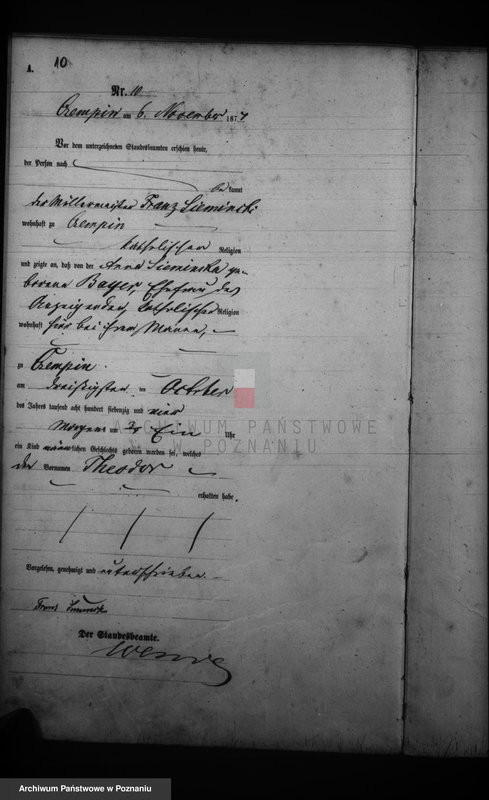 A. 10
Nr. 10
Crempin am 6. November 1874
Vor dem unterzeichneten Standesbeamten erschien heute,
der Person nach
be kannt
der Müllermeister Franz Sieminski
wohnhaft zu Crempin
katholischer Religion
und zeigte an, daß von der Anna Sieminska ge-
borene Bayer, Ehefrau des
Anzeigenden, katholischer Religion
wohnhaft hier bei ihrem Manne,
zu Crempin
am dreißigsten ten October
des Jahres tausend acht hundert siebenzig und vier
Morgens um Ein Uhr
ein Kind männlichen Geschlechts geboren worden sei, welches
den Vornamen Theodor
erhalten habe.
Vorgelesen, genehmigt und unterschrieben.
Franz
Der Standesbeamte.
ARCHIWUM PAŃSTWOWE
W POZNANIU
Archiwum Państwowe w Poznaniu